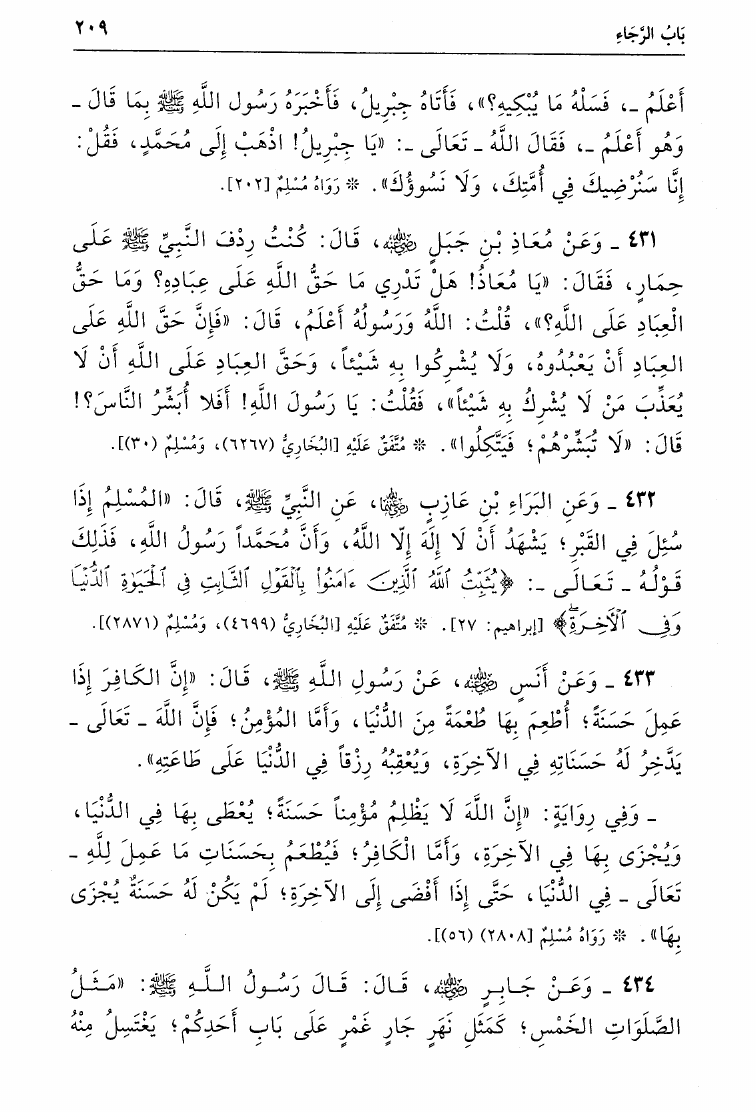 بَابُ الرَّجَاءِ ٢٠٩
أَعْلَمُ ـ، فَسَلْهُ مَا يُبْكِيهِ؟»، فَأَتَاهُ جِبْرِيلُ، فَأَخْبَرَهُ رَسُولُ اللَّهِ ﷺ بِمَا قَالَ ـ
وَهُوَ أَعْلَمُ ـ، فَقَالَ اللَّهُ ـ تَعَالَى ـ: «يَا جِبْرِيلُ! اذْهَبْ إِلَى مُحَمَّدٍ، فَقُلْ:
إِنَّا سَنُرْضِيكَ فِي أُمَّتِكَ، وَلَا نَسُوؤُكَ». * رَوَاهُ مُسْلِمٌ [٢٠٢].
٤٣١ ـ وَعَنْ مُعَاذِ بْنِ جَبَلٍ رضي الله عنه، قَالَ: كُنْتُ رِدْفَ النَّبِيِّ ﷺ عَلَى
حِمَارٍ، فَقَالَ: «يَا مُعَاذُ! هَلْ تَدْرِي مَا حَقُّ اللَّهِ عَلَى عِبَادِهِ؟ وَمَا حَقُّ
الْعِبَادِ عَلَى اللَّهِ؟»، قُلْتُ: اللَّهُ وَرَسُولُهُ أَعْلَمُ، قَالَ: «فَإِنَّ حَقَّ اللَّهِ عَلَى
العِبَادِ أَنْ يَعْبُدُوهُ، وَلَا يُشْرِكُوا بِهِ شَيْئاً، وَحَقَّ العِبَادِ عَلَى اللَّهِ أَنْ لَا
يُعَذِّبَ مَنْ لَا يُشْرِكُ بِهِ شَيْئاً»، فَقُلْتُ: يَا رَسُولَ اللَّهِ! أَفَلا أُبَشِّرُ النَّاسَ؟!
قَالَ: «لَا تُبَشِّرْهُمْ؛ فَيَتَّكِلُوا». * مُتَّفَقٌ عَلَيْهِ [البُخَارِيُّ (٦٢٦٧)، وَمُسْلِمٌ (٣٠)].
٤٣٢ ـ وَعَنِ البَرَاءِ بْنِ عَازِبٍ رضي الله عنهما، عَنِ النَّبِيِّ ﷺ، قَالَ: «المُسْلِمُ إِذَا
سُئِلَ فِي القَبْرِ؛ يَشْهَدُ أَنْ لَا إِلَهَ إِلَّا اللَّهُ، وَأَنَّ مُحَمَّداً رَسُولُ اللَّهِ، فَذَلِكَ
قَوْلُهُ ـ تَعَالَى ـ: ﴿يُثَبِّتُ ٱللَّهُ ٱلَّذِينَ ءَامَنُوا۟ بِٱلْقَوْلِ ٱلثَّابِتِ فِى ٱلْحَيَوٰةِ ٱلدُّنْيَا
وَفِى ٱلْأٓخِرَةِۖ﴾ [إبراهيم: ٢٧]. * مُتَّفَقٌ عَلَيْهِ [البُخَارِيُّ (٤٦٩٩)، وَمُسْلِمٌ (٢٨٧١)].
٤٣٣ ـ وَعَنْ أَنَسٍ رضي الله عنه، عَنْ رَسُولِ اللَّهِ ﷺ، قَالَ: «إِنَّ الكَافِرَ إِذَا
عَمِلَ حَسَنَةً؛ أُطْعِمَ بِهَا طُعْمَةً مِنَ الدُّنْيَا، وَأَمَّا المُؤْمِنُ؛ فَإِنَّ اللَّهَ ـ تَعَالَى ـ
يَدَّخِرُ لَهُ حَسَنَاتِهِ فِي الآخِرَةِ، وَيُعْقِبُهُ رِزْقاً فِي الدُّنْيَا عَلَى طَاعَتِهِ».
ـ وَفِي رِوَايَةٍ: «إِنَّ اللَّهَ لَا يَظْلِمُ مُؤْمِناً حَسَنَةً؛ يُعْطَى بِهَا فِي الدُّنْيَا،
وَيُجْزَى بِهَا فِي الآخِرَةِ، وَأَمَّا الْكَافِرُ؛ فَيُطْعَمُ بِحَسَنَاتِ مَا عَمِلَ لِلَّهِ ـ
تَعَالَى ـ فِي الدُّنْيَا، حَتَّى إِذَا أَفْضَى إِلَى الآخِرَةِ؛ لَمْ يَكُنْ لَهُ حَسَنَةٌ يُجْزَى
بِهَا». * رَوَاهُ مُسْلِمٌ [(٢٨٠٨) (٥٦)].
٤٣٤ ـ وَعَنْ جَابِرٍ رضي الله عنه، قَالَ: قَالَ رَسُولُ اللَّهِ ﷺ: «مَثَلُ
الصَّلَوَاتِ الخَمْسِ؛ كَمَثَلِ نَهَرٍ جَارٍ غَمْرٍ عَلَى بَابِ أَحَدِكُمْ؛ يَغْتَسِلُ مِنْهُ